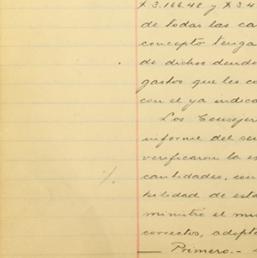 $3.166.42 y $3.4
de todas las ca
concepto tenga
de dichos deudo
gastos que les co
con el ya indica
Los Consejer
informe del se
verificaron la es
cantidades, con
bilidad de esta
ministró el mi
correctos, adopta
— Primero.-